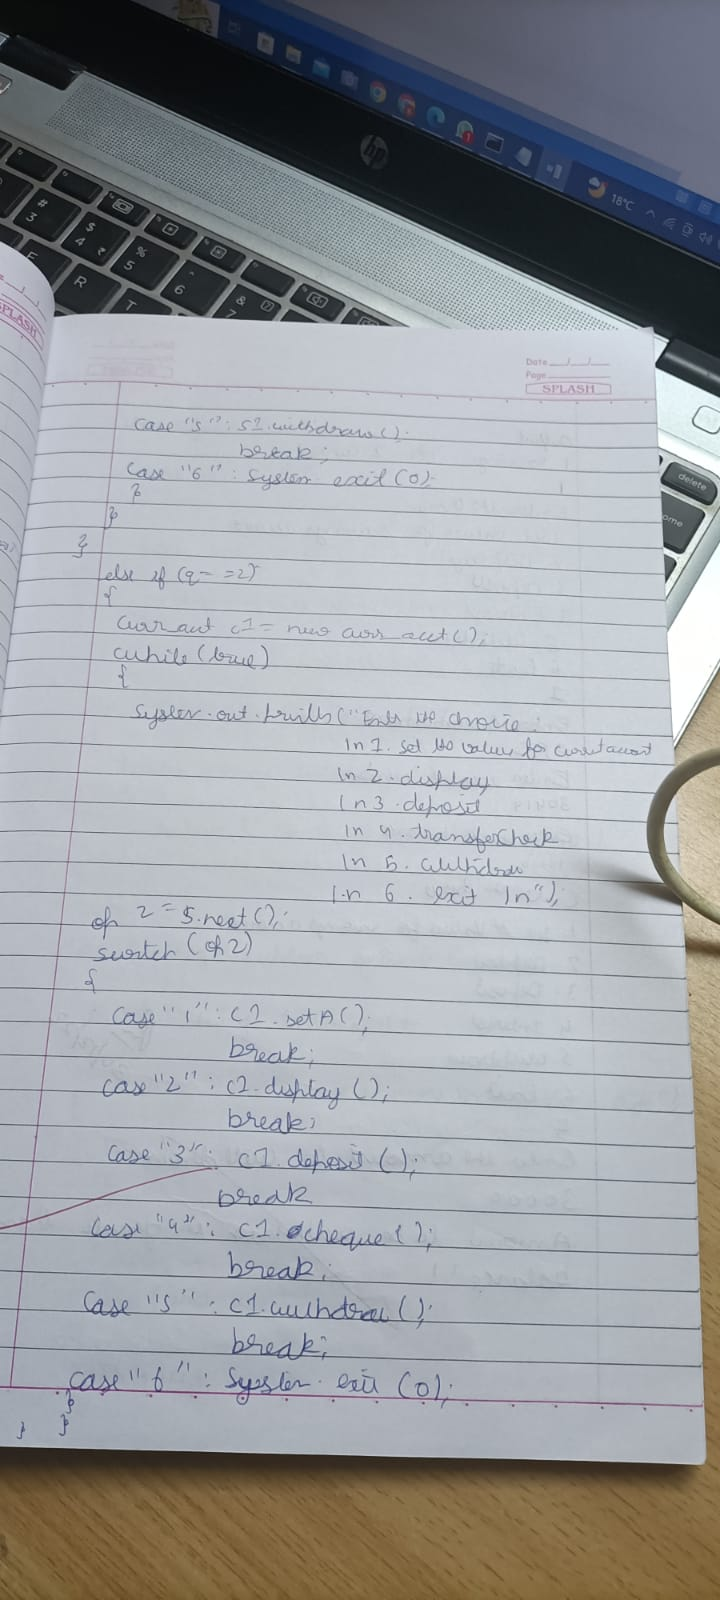 hp
18°C
# 3
$ 4 ₹
% 5
^ 6
& 7
R
T
delete
SPLASH
Date
Page
SPLASH
case "5" : s1.withdraw();
break;
case "6" : System. exit (0);
}
}
}
else if (q- =2)
{
curr acct c1 = new curr acct();
while (true)
{
System.out.println("Enter the choice :
\n 1. set the values for current account
\n 2. display
\n 3. deposit
\n 4. transfercheck
\n 5. withdraw
\n 6. exit \n");
op 2 = s.next();
switch (op2)
{
case "1" : c1.setA();
break;
case "2" : c1.display();
break;
case "3" : c1.deposit();
break
case "4" : c1.cheque();
break;
case "5" : c1.withdraw();
break;
case "6" : System. exit (0);
}
}
}